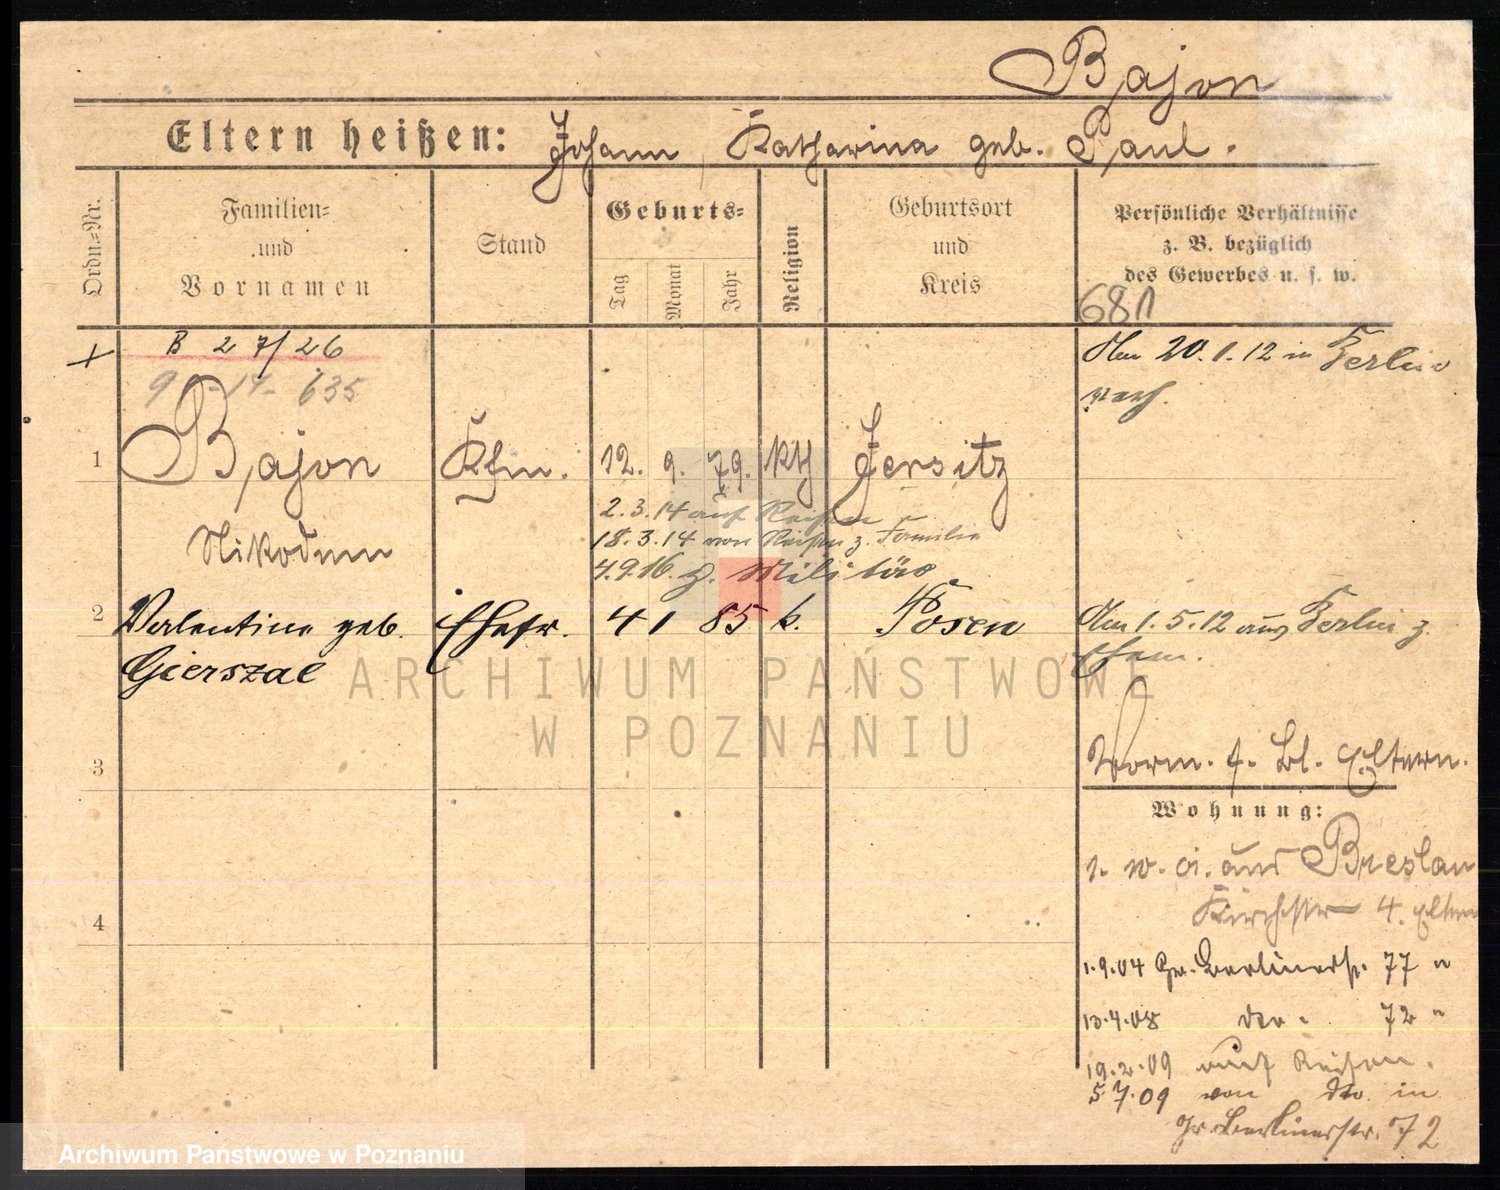 Bajon
Eltern heißen: Johann, Katharina geb. Paul.
Ordn.=Nr.
Familien=
und
Vornamen
Stand
Geburts=
Tag
Monat
Jahr
Religion
Geburtsort
und
Kreis
Persönliche Verhältnisse
z. B. bezüglich
des Gewerbes u. s. w.
681
B 27/26
9 - 14 - 635
Am 20.1.12 in Berlin
verh.
1 Bajon Kfm. 12. 9. 79. kth Jersitz
Nikodem
2.3.14 auf Reisen
18.3.14 von Reisen z. Familie
4.9.16. z. Militär
2 Valentine geb. Ehefr. 4 1 85 k. Posen
Gierszal
Am 1.5.12 aus Berlin z.
Ehem.
3
Vorm. f. Bl. Eltern.
Wohnung:
aus Breslau
Kirchstr 4. Eltern
4
1.9.04 Gr. Berlinerstr. 77 "
13.4.08 dto. 72 "
19.2.09 auf Reisen.
5.7.09 von dto. in
Gr. Berlinerstr. 72
ARCHIWUM PAŃSTWOWE
W POZNANIU
Archiwum Państwowe w Poznaniu